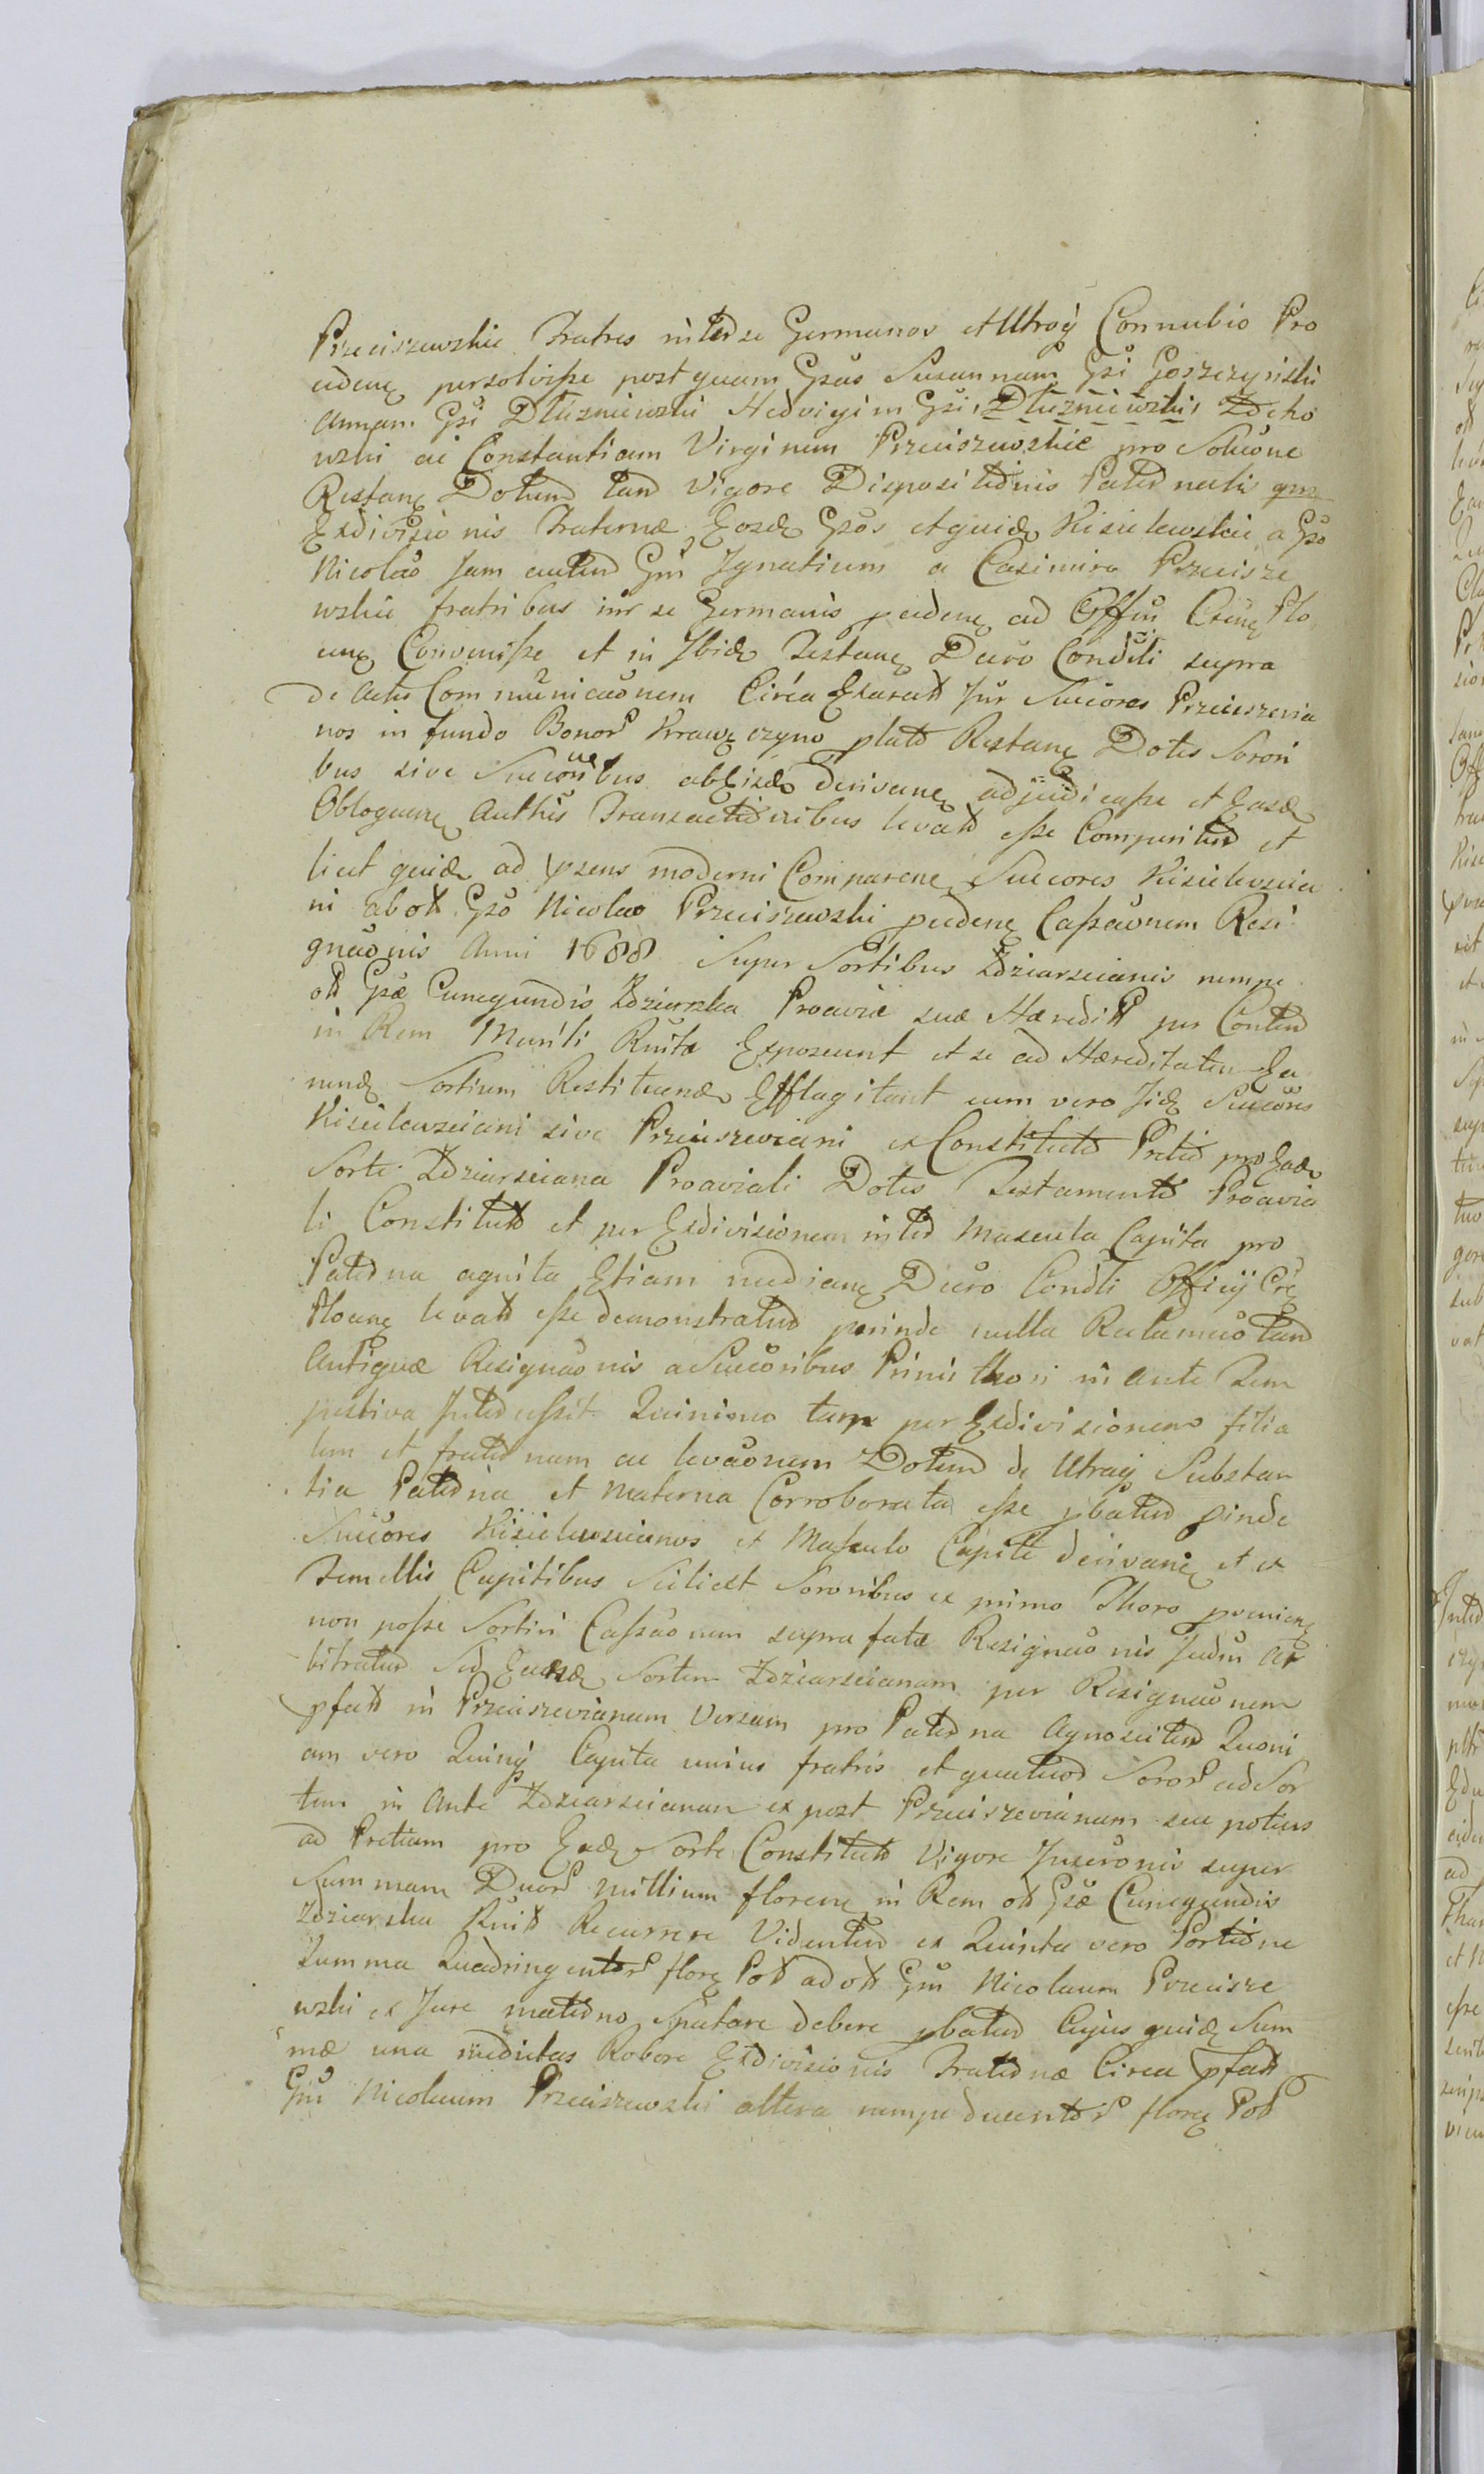 Przeciszewskie Fratres inter se Germanos et Utroq Connubio Pro
cedenę persolvisse post quam Gsas Susannam Gsi Goszczynski
Annam Gsi Dłuzniewski Hedvigim Gsi Dłuzniewski, Zdcho
wski ac Constantiam Virginem Przeciszewskie pro Solucone
Restanę Dotum tam Vigore Dispositionis Paternalis qm
Exdivisionis Fraternæ Eosdę Gsos et quidę Kisielewskie a Gso
Nicolao Jam autem Gm Ignatium a Casimiro Przecisze
wskie fratribus inr se Germanis pcedenę ad Offm Crenę Plo
cenę Convenisse et in Ibidę Testanę Decro Condili supra
de actis Communicaonem Circa Exaratt Jur Succores Przeciszevia
nos in fundo Bonor Krawęczyno platt Restanę Dotis Sorori
bus sive Succoribus ab Eisdę derivanę adjudicasse et Easdę
Obloquenę Authis Transactionibus levatt esse Comperitur et
licet quidę ad psens moderni Comparenę Succores Kisielevscia
ni ab ott Gso Nicolao Przeciszewski pcedenę Cassaonem Resi
gnaonis Anni 1688 Super Sortibus Zdziarscianis nempe
ott Gsæ Cunegundis Zdziarska Proaviæ suæ Hæreditt per Contum
in Rem Mariti Rnitæ Exposcunt et se ad Hæreditatem Ea
rundę Sortium Restituendę Efflagitant cum vero Iidę Succores
Kisielewsciani sive Przeciszeviani ex Constitutt Pretio pro Eadę
Sorte Zdziarsciana Proaviali Dotis Testamento Proavia
li Constitutt et per Exdivisionem inter Mascula Capita pro
Paterna agnita Etiam medianę Decro Condli Officij Crę
Plocenę levatt esse demonstratur perinde nulla Reclamaotan
Antiquæ Resignaonis a Succoribus Primi thori in ante Tem
pestiva Intercessit Quinimo tam per Exdivisionem filia
lem et fraternam ac levaonem Dotum de Utraq Substan
tia Paterna et Materna Corroborata esse pbatur pinde
Succores Kisielewscianos ex Masculo Capite derivanę et ex
Femellis Capitibus Scilicet Sororibus ex primo Thoro pvenienę
non posse Sortiri Cassaonem suprafatæ Resignaonis Judm Ar
bitratur Sed Eandę Sortem Zdziarscianam per Resignaonem
pfatt in Przeciszevianam Versam pro Paterna Agnoscitur Quoni
am vero Quinq Capita unius fratris et quatuor Soror ad Sor
tem in Ante Zdziarscianam ex post Przeciszevianam seu potius
ad Pretium pro Eadę Sorte Constitutt Vigore Inscronis super
Summam Duor Millium florenę in Rem ott Gsæ Cunegundis
Zdziarska Rnitt Recurrere Videntur ex Quinta vero Portione
Summa Quadringentor florę Pol ad ott Gm Nicolaum Przecisze
wski ex Jure materno Spectare debere pbatur Cujus quidę Sum
mæ una medietas Robore Exdivisionis Fraternæ Circa pfatt
Gm Nicolaum Przeciszewski altera nempe ducentor florę Pol